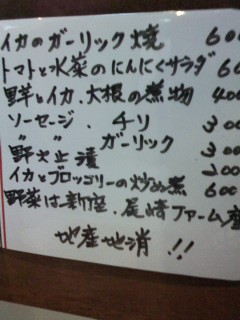 イカのガーリック焼 600
トマトと水菜のにんにくサラダ 60
里芋とイカ、大根の煮物 400
ソーセージ、チリ 300
〃 〃 ガーリック 300
野菜漬 200
イカとブロッコリーの炒め煮 600
野菜は新座、尾崎ファーム産
地産地消!!